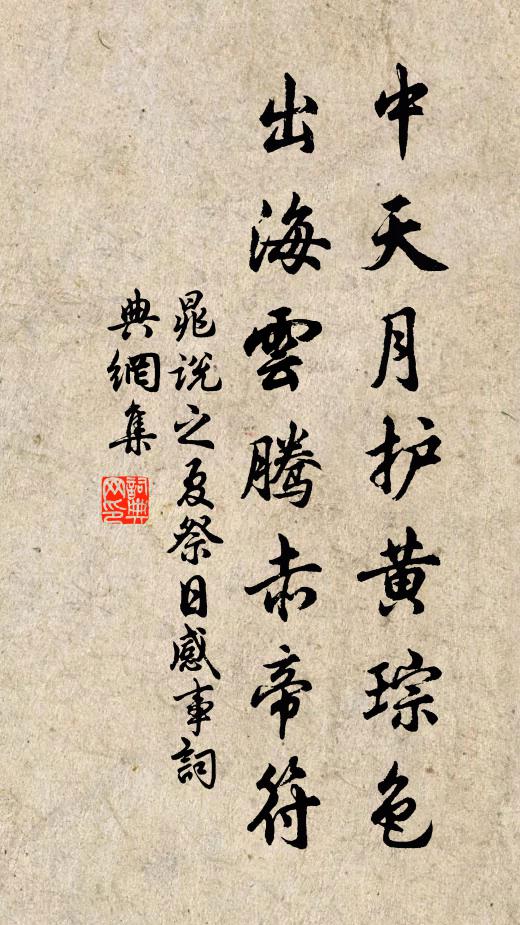 中天月护黄琮色
出海雲腾赤帝符
晁说之夏祭日感事詞
典網集
詞典网印